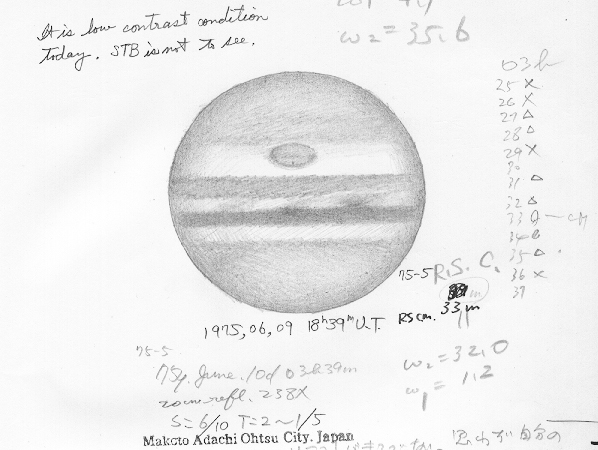 It is low contrast condition
today. STB is not to see.
ω2 = 35.6
03h
25 ×
26 ×
27 △
28 △
29 ×
30
31 △
32 △
33
34
35 △
36 ×
37
75-5 R.S.C.
RS cm. 33 m
1975, 06, 09 18h39m U.T.
75-5
75y. June. 10d 03h39m
refl. 238X
S=6/10 T=2~1/5
ω2 = 32.0
ω1 = 1.2
Makoto Adachi Ohtsu City. Japan